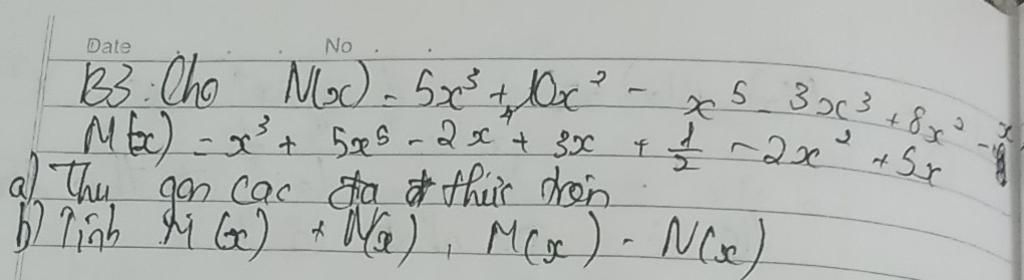 Date No
B3: Cho N(x) = 5x³ + 10x² - x⁵ - 3x³ + 8x² - x
M(x) = x³ + 5x⁵ - 2x⁴ + 3x + 1/2 - 2x² + 5x
a) Thu gọn các đa thức trên
b) Tính M(x) + N(x), M(x) - N(x)